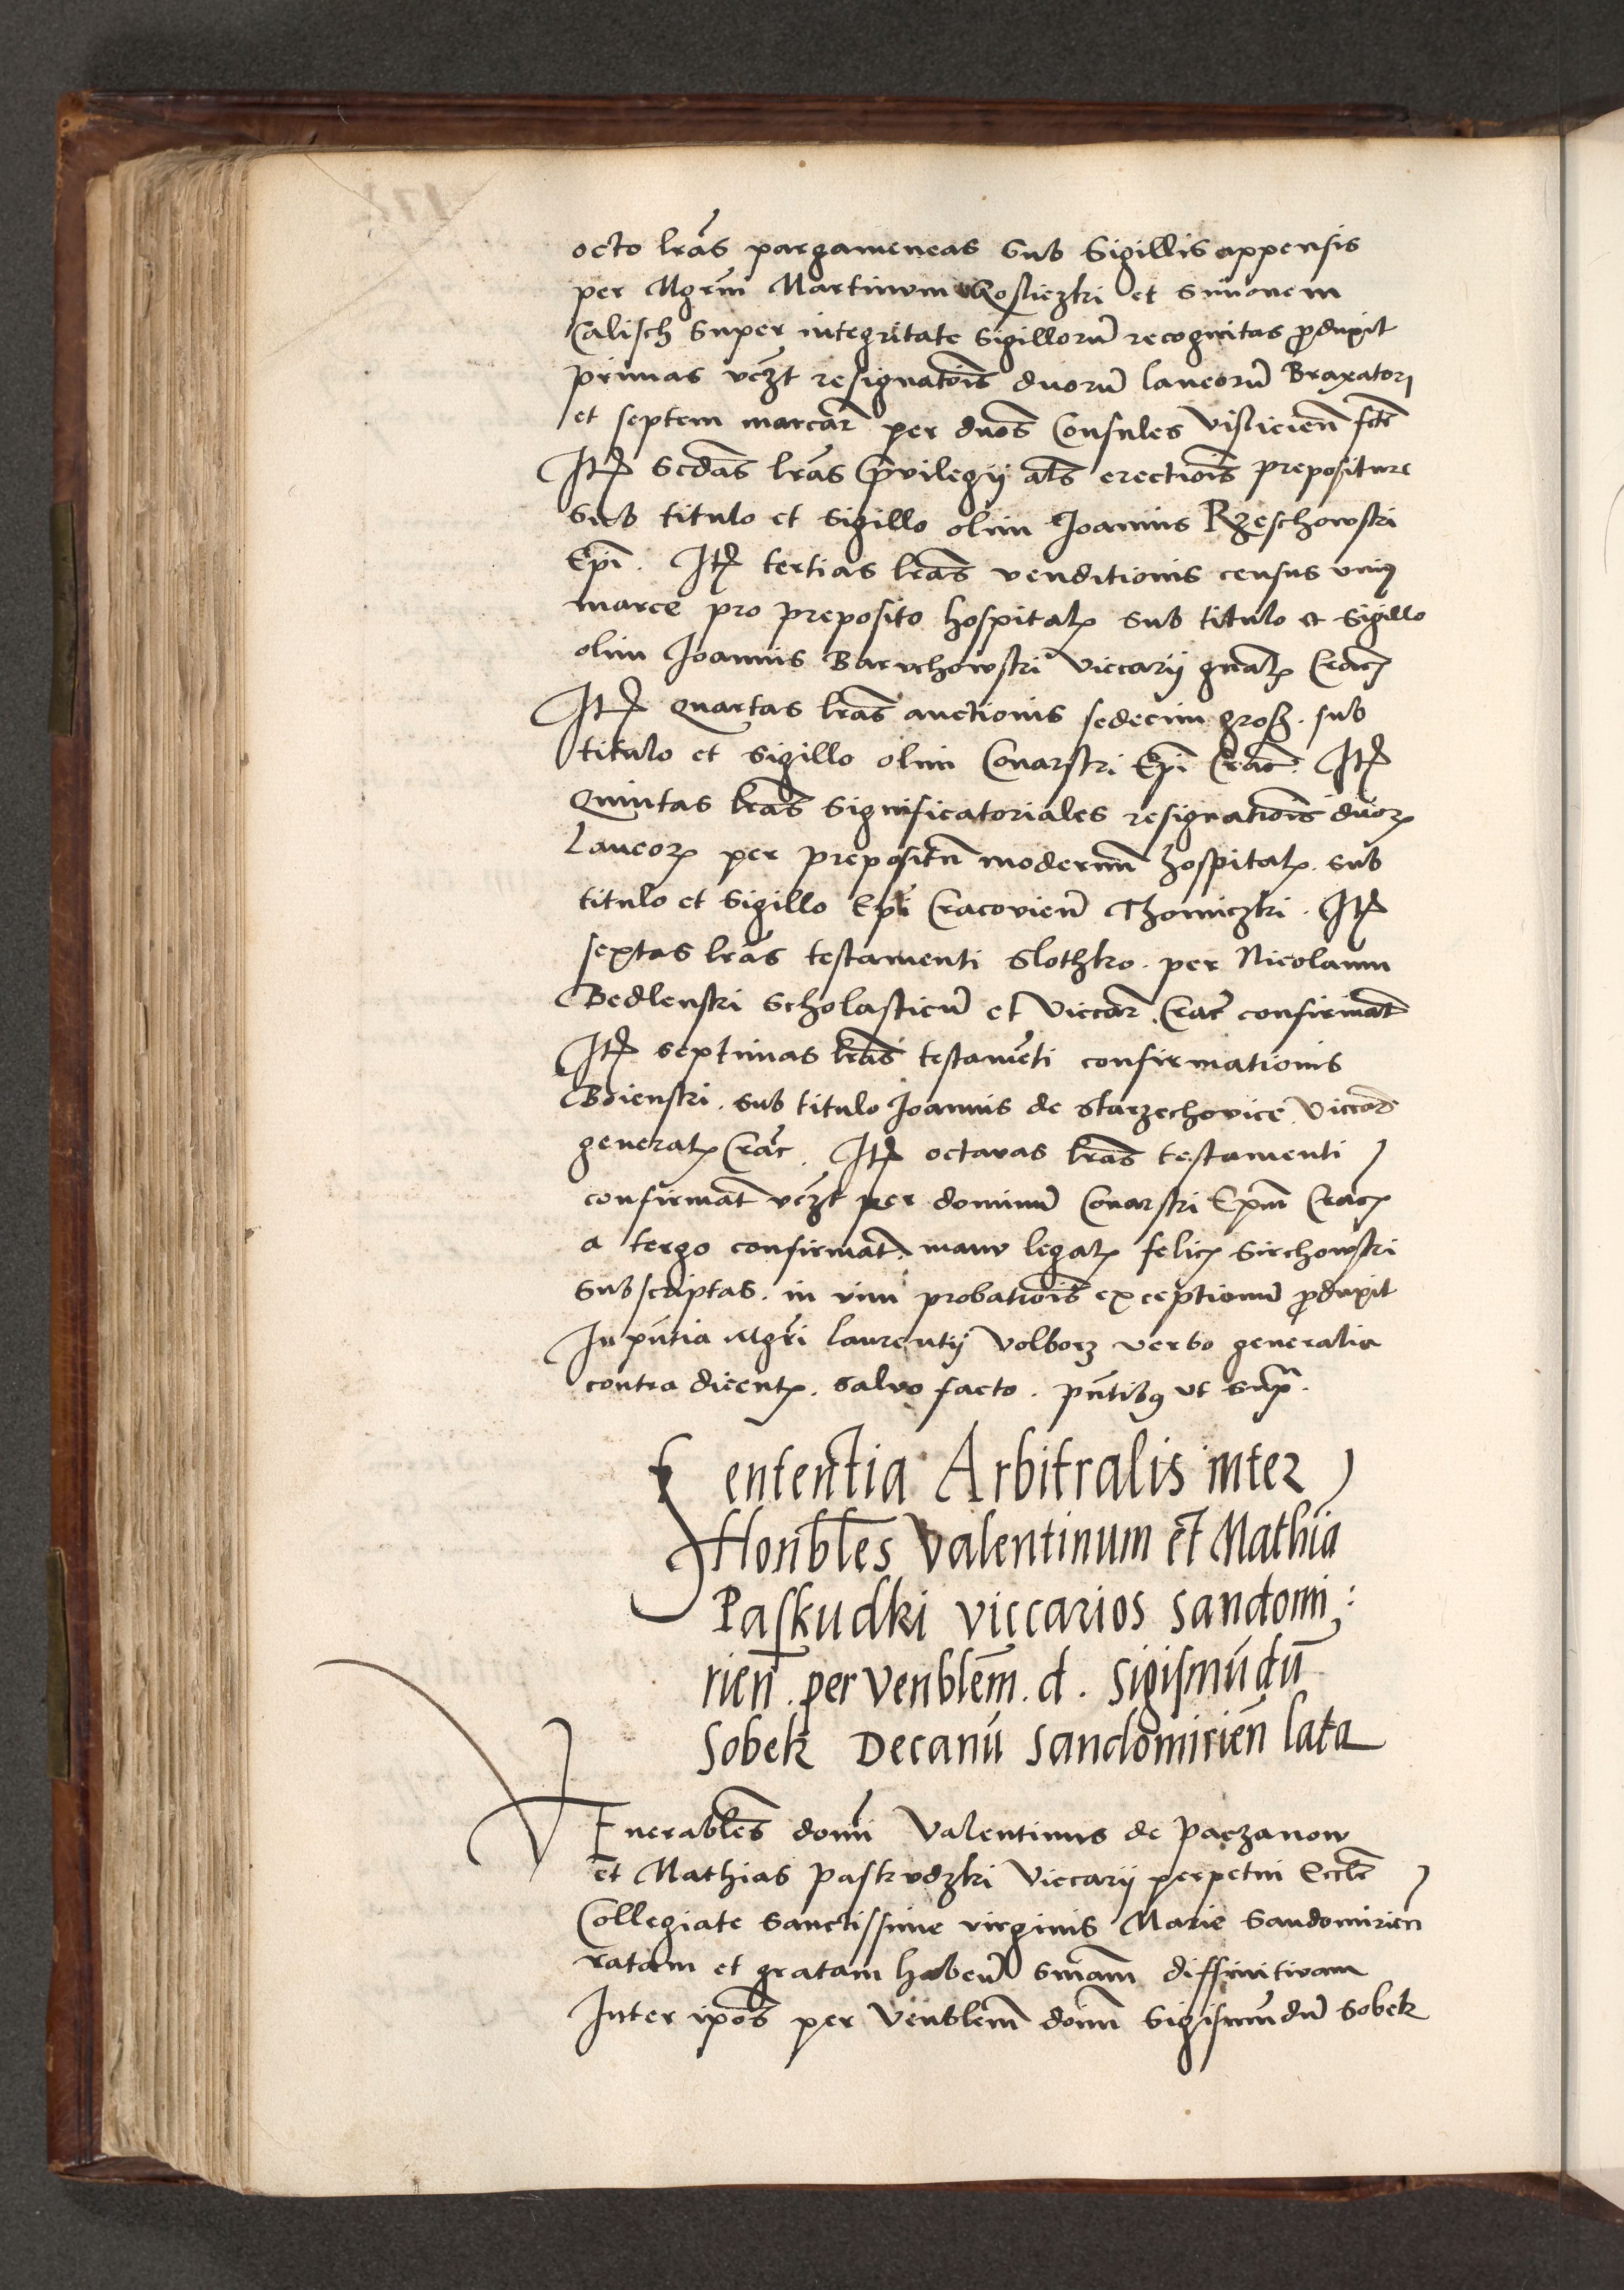 octo lras pargameneas sub sigillis appensis
per Mgrm Martinum Rosliczki et Simonem
Calisch super integritate sigilloru recognitas produxit
primas vczt resignatois duoru laneoru Braxatorj
et septem marcar per duos Consules Vislicien fctꝭ
Itꝫ scdas lras privilegij als erectiois prepositure
sub titulo et sigillo olim Joannis Rzeschowski
Epi. Itꝫ tertias lras venditionis census vniꝰ
marce pro preposito hospitalꝭ sub titulo et sigillo
olim Joannis Baruchowski viccarij gnalꝭ Cracꝭ
Itꝫ quartas lras auctionis sedecim gross. sub
titulo et sigillo olim Conarski Epi Crac. Itꝫ
quintas lras significatoriales resignatiois duorꝫ
laneorꝫ per prepositu modernu hospitalꝭ sub
titulo et sigillo Epi Cracovien Thomiczki. Itꝫ
sextas lras testamenti Slothko. per Nicolaum
Bedlenski Scholasticu et viccar. Crac confirmat
Itꝫ septimas lras testameti confirmationis
Boienski. sub titulo Joannis de Starzechovice viccar
generalꝭ Crac. Itꝫ octavas lras testamenti
confirmat vczt per dominu Conarski Epm Cracꝭ
a tergo confirmat. manu legalꝭ felicꝭ Sirchowski
subscriptas. in vim probatiois exceptionu produxit
In pntia Mgri Laurentij Volborz verbo generalia
contra dicentꝭ. salvo facto. pntibꝰ vt supra.
Sententia Arbitralis inter
Honbles Valentinum et Mathia
Paskudki viccarios sandomi:
rien. per venblem. d. Sigismudu
Sobek Decanu Sandomirien lata
VEnerables domi Valentinus de Paczanow
et Mathias Paskudzki viccarij perpetui Eccle
Collegiate Sanctissime virginis Marie Sandomirien
ratam et gratam haben sniam diffinitivam
Inter ipos per venblem domi Sigismundu Sobek